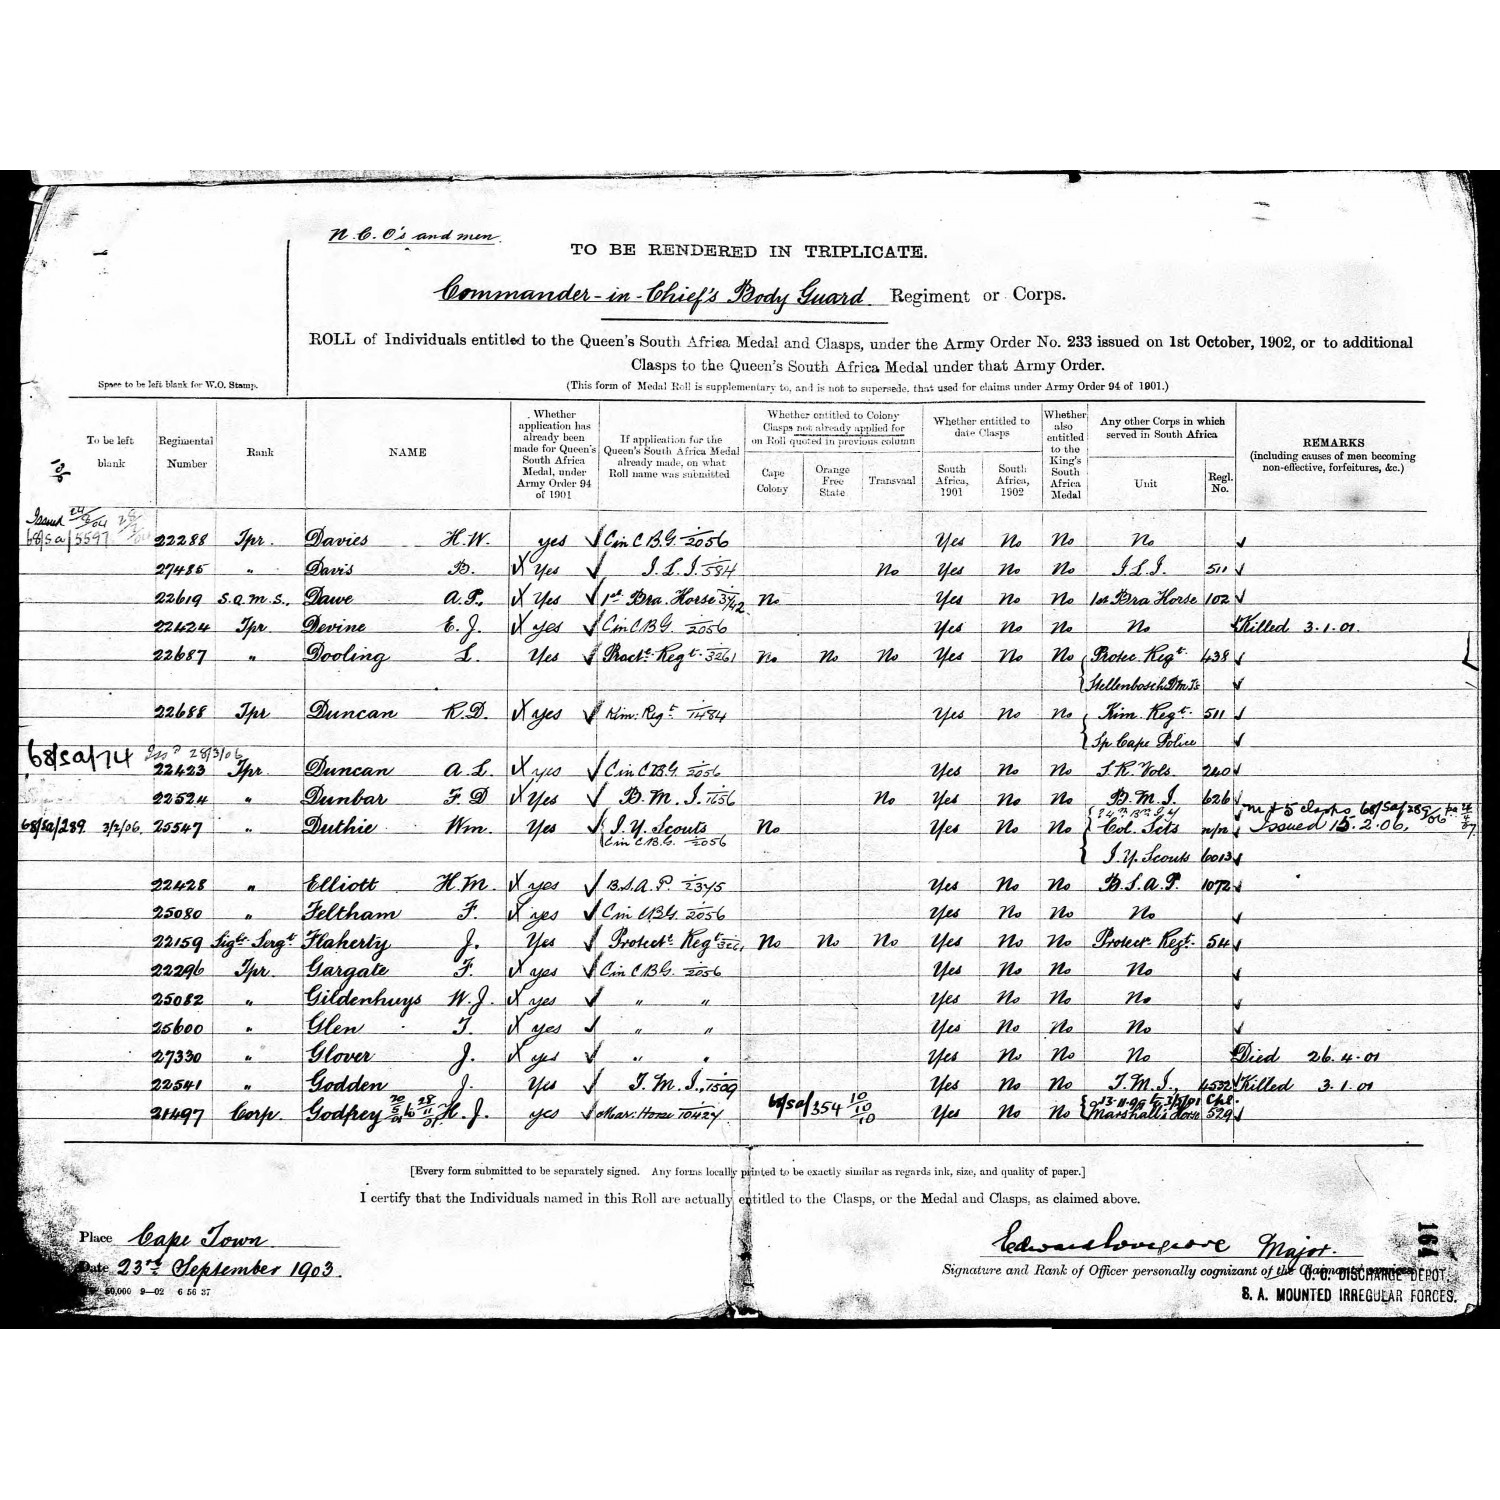 N.C.O's and men.
TO BE RENDERED IN TRIPLICATE.
Commander-in-Chief's Body Guard Regiment or Corps.
ROLL of Individuals entitled to the Queen's South Africa Medal and Clasps, under the Army Order No. 233 issued on 1st October, 1902, or to additional
Clasps to the Queen's South Africa Medal under that Army Order.
Space to be left blank for W.O. Stamp.
(This form of Medal Roll is supplementary to, and is not to supersede, that used for claims under Army Order 94 of 1901.)
To be left blank
Regimental Number
Rank
NAME
Whether application has already been made for Queen's South Africa Medal, under Army Order 94 of 1901
If application for the Queen's South Africa Medal already made, on what Roll name was submitted
Whether entitled to Colony Clasps not already applied for on Roll quoted in previous column
Cape Colony
Orange Free State
Transvaal
Whether entitled to date Clasps
South Africa, 1901
South Africa, 1902
Whether also entitled to the King's South Africa Medal
Any other Corps in which served in South Africa
Unit
Regl. No.
REMARKS
(including causes of men becoming non-effective, forfeitures, &c.)
Issued
68/SA/5597 22288 Tpr. Davies H.W. yes C in C B.G. 2056 Yes No No No
27485 " Davis B. Yes I.L.I. 584 No Yes No No I.L.I. 511
22619 S.Q.M.S. Dawe A.P. Yes 1st Bra. Horse No Yes No No 1st Bra Horse 102
22424 Tpr. Devine E.J. yes C in C B G. 2056 Yes No No No Killed 3.1.01.
22687 " Dooling L. Yes Regt. 3261 No No No Yes No No Protec. Regt. 438
Stellenbosch D.M.Ts
22688 Tpr Duncan R.D. yes Kim. Regt. 1484 Yes No No Kim. Regt. 511
Sp Cape Police
68/SA/74 28/3/06
22423 Tpr. Duncan A.L. yes C in C B.G. 2056 Yes No No S.R. Vols. 240
22524 " Dunbar F.D Yes B.M.I. 1656 No Yes No No B.M.I. 626
68/SA/289 3/2/06. 25547 " Duthie Wm. Yes I.Y. Scouts No Yes No No Col. Scts n/n Issued 15.2.06.
C in C B.G. 2056
M & 5 Clasps 68/SA/289
I.Y. Scouts 6013
22428 " Elliott H.M. yes B.S.A.P. 2345 Yes No No B.S.A.P. 1072
25080 " Feltham F. yes C in C B G. 2056 Yes No No No
22159 Sigt. Sergt. Flaherty J. Yes Protect. Regt. No No No Yes No No Protect. Regt. 54
22296 Tpr. Gargate F. yes C in C B G. 2056 Yes No No No
25082 " Gildenhuys W.J. yes " " Yes No No No
25600 " Glen T. yes " " Yes No No No
27330 " Glover J. yes " " Yes No No No Died 26.4.01
22541 " Godden J. Yes T.M.I. 1509 Yes No No T.M.I. 4532 Killed 3.1.01
21497 Corp. Godfrey H.J. yes Mar. Horse 10427 68/SA/354 10/10/10 Yes No No Marshall's Horse 529
[Every form submitted to be separately signed. Any forms locally printed to be exactly similar as regards ink, size, and quality of paper.]
I certify that the Individuals named in this Roll are actually entitled to the Clasps, or the Medal and Clasps, as claimed above.
Place Cape Town.
Date 23rd September 1903.
Edward Lovegrove Major.
Signature and Rank of Officer personally cognizant of the Claimants' services.
O. C. DISCHARGE DEPOT.
S. A. MOUNTED IRREGULAR FORCES.
50,000 9—02 6 56 37
164